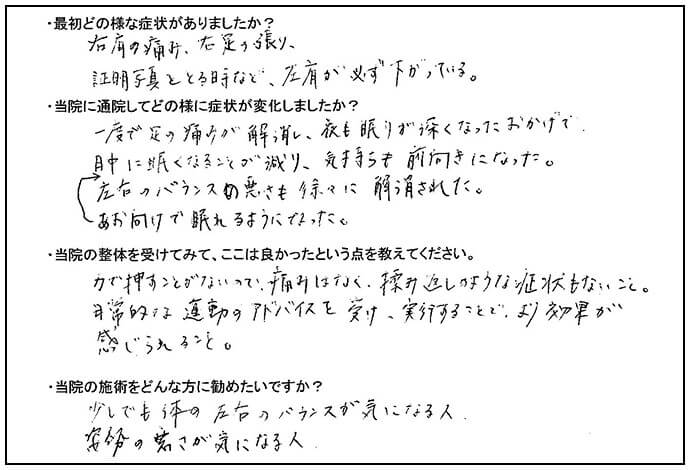 ・最初どの様な症状がありましたか？
右肩の痛み、右足の張り、
証明写真をとる時など、左肩が必ず下がっている。
・当院に通院してどの様に症状が変化しましたか？
一度で足の痛みが解消し、夜も眠りが深くなったおかげで
日中に眠くなることが減り、気持ちも前向きになった。
左右のバランスの悪さも徐々に解消された。
あお向けで眠れるようになった。
・当院の整体を受けてみて、ここは良かったという点を教えてください。
力で押すことがないので、痛みはなく、揉み返しのような症状もないこと。
日常的な運動のアドバイスを受け、実行することで、より効果が
感じられること。
・当院の施術をどんな方に勧めたいですか？
少しでも体の左右のバランスが気になる人
姿勢の悪さが気になる人